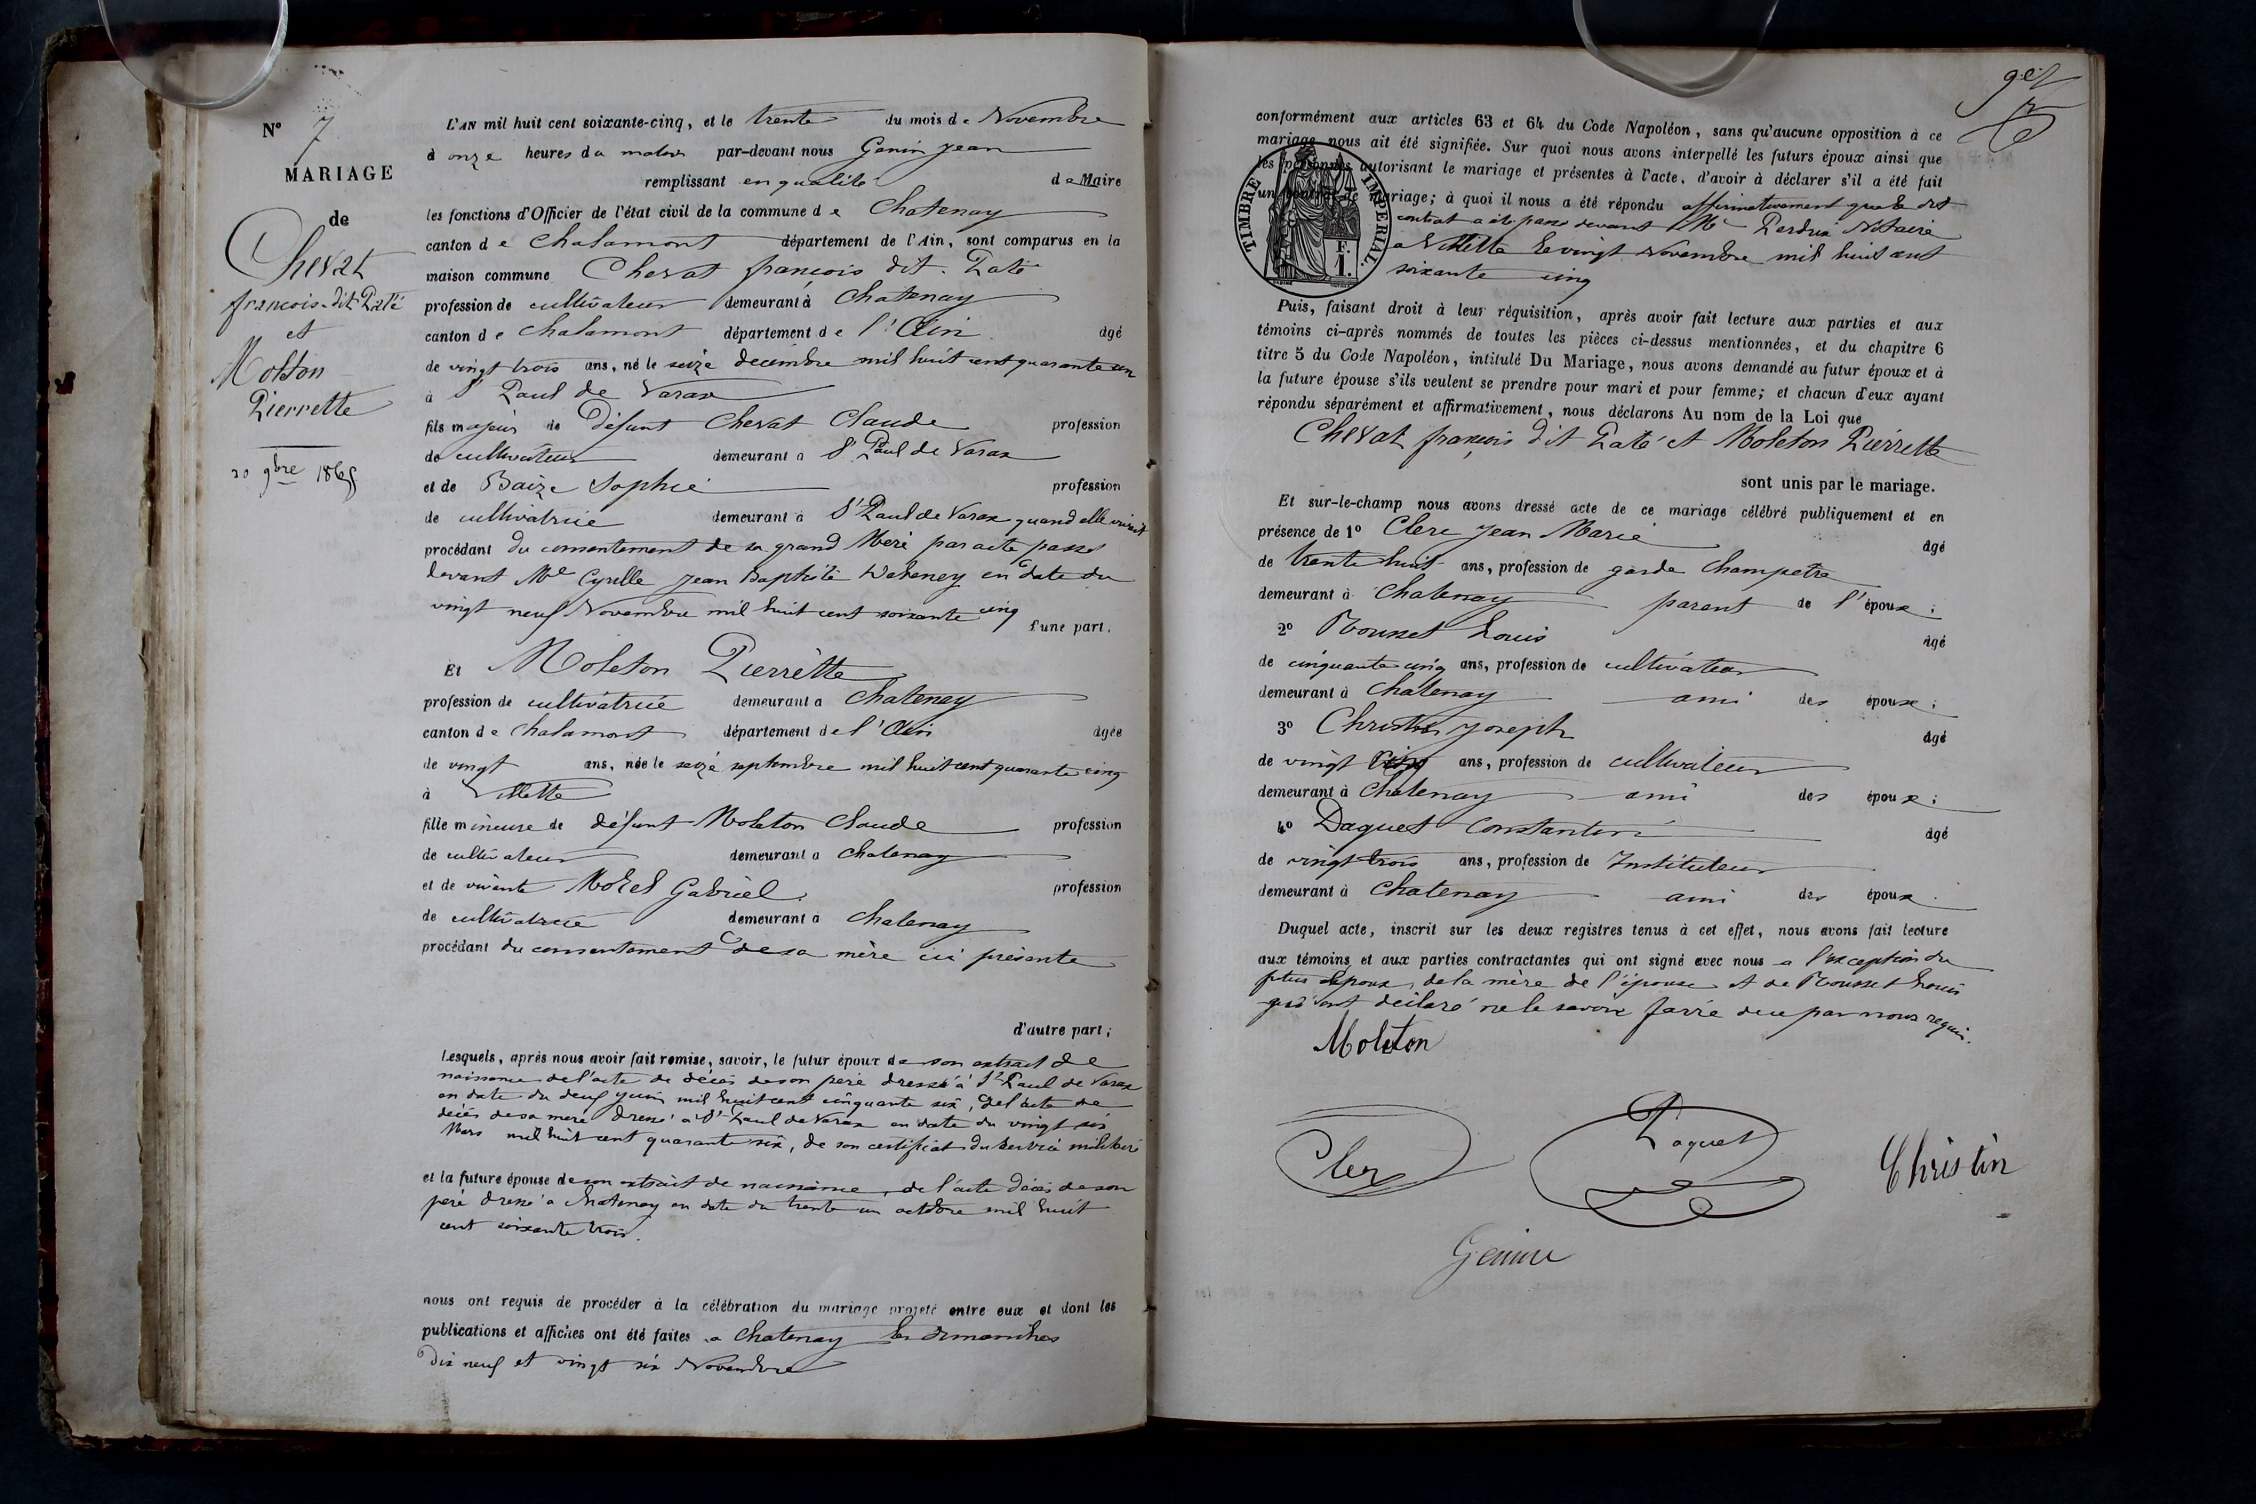 N° 7
MARIAGE
de
Chevat
françois dit Paté
et
Moleton
Pierrette
30 9bre 1865
L'AN mil huit cent soixante-cinq, et le trente du mois de Novembre
à onze heures du matin par-devant nous Genin Jean
remplissant en qualité de Maire
les fonctions d'Officier de l'état civil de la commune de Chatenay
canton de Chalamont département de l'Ain, sont comparus en la
maison commune Chevat françois dit Paté
profession de cultivateur demeurant à Chatenay
canton de Chalamont département de l'Ain âgé
de vingt trois ans, né le seize decembre mil huit cent quarante un
à St Paul de Varax
fils majeur de Défunt Chevat Claude profession
de cultivateur demeurant à St Paul de Varax
et de Baize Sophie profession
de cultivatrice demeurant à St Paul de Varax quand elle vivait
procédant du consentement de sa grand Mère par acte passé
devant Me Cyrille Jean Baptiste en date du
vingt neuf Novembre mil huit cent soixante cinq
d'une part.
Et Moleton Pierrette
profession de cultivatrice demeurant à Chatenay
canton de Chalamont département de l'Ain âgée
de vingt ans, née le seize septembre mil huit cent quarante cinq
à Villette
fille mineure de défunt Moleton Claude profession
de cultivateur demeurant à Chatenay
et de vivante Morel Gabriel profession
de cultivatrice demeurant à Chatenay
procédant du consentement de sa mère ici présente
d'autre part;
Lesquels, après nous avoir fait remise, savoir, le futur époux de son extrait de
naissance de l'acte de décès de son père dressé à St Paul de Varax
en date du deux juin mil huit cent cinquante six, de l'acte de
décès de sa mère dressé à St Paul de Varax en date du vingt six
Mars mil huit cent quarante six, de son certificat du service militaire
et la future épouse de son extrait de naissance, de l'acte décès de son
père dressé à Chatenay en date du trente un octobre mil huit
cent soixante trois.
nous ont requis de procéder à la célébration du mariage projeté entre eux et dont les
publications et affiches ont été faites à Chatenay les dimanches
Dix neuf et vingt six Novembre
conformément aux articles 63 et 64 du Code Napoléon, sans qu'aucune opposition à ce
mariage nous ait été signifiée. Sur quoi nous avons interpellé les futurs époux ainsi que
les personnes autorisant le mariage et présentes à l'acte, d'avoir à déclarer s'il a été fait
un contrat de mariage; à quoi il nous a été répondu affirmativement que le dit
contrat a été passé devant Me Perdrix Notaire
à Villette le vingt Novembre mil huit cent
soixante cinq
TIMBRE IMPERIAL.
F.
1.
Puis, faisant droit à leur réquisition, après avoir fait lecture aux parties et aux
témoins ci-après nommés de toutes les pièces ci-dessus mentionnées, et du chapitre 6
titre 5 du Code Napoléon, intitulé Du Mariage, nous avons demandé au futur époux et à
la future épouse s'ils veulent se prendre pour mari et pour femme; et chacun d'eux ayant
répondu séparément et affirmativement, nous déclarons Au nom de la Loi que
Chevat françois dit Paté et Moleton Pierrette
sont unis par le mariage.
Et sur-le-champ nous avons dressé acte de ce mariage célébré publiquement et en
présence de 1° Clerc Jean Marie âgé
de trente huit ans, profession de garde Champetre
demeurant à Chatenay parent de l'époux;
2° Rousset Louis âgé
de cinquante cinq ans, profession de cultivateur
demeurant à Chatenay ami des époux;
3° Christin Joseph âgé
de vingt ans, profession de cultivateur
demeurant à Chatenay ami des époux;
4° Daquet Constantin âgé
de vingt trois ans, profession de Instituteur
demeurant à Chatenay ami des époux.
Duquel acte, inscrit sur les deux registres tenus à cet effet, nous avons fait lecture
aux témoins et aux parties contractantes qui ont signé avec nous à l'exception du
futur époux, de la mère de l'épouse et de Rousset Louis
qui ont déclaré ne le savoir faire de ce par nous requis.
Moleton
Clerc
Daquet
Christin
Genin